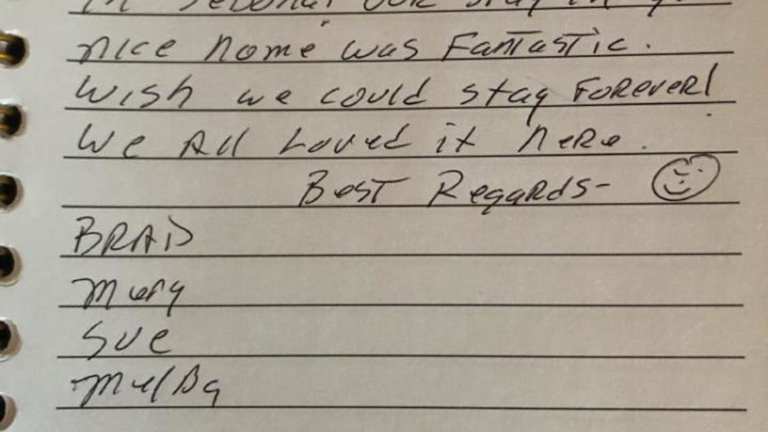 our stay in
nice home was Fantastic.
Wish we could stay Forever!
We All Loved it here.
Best Regards-
BRAD
Mary
Sue
Melba